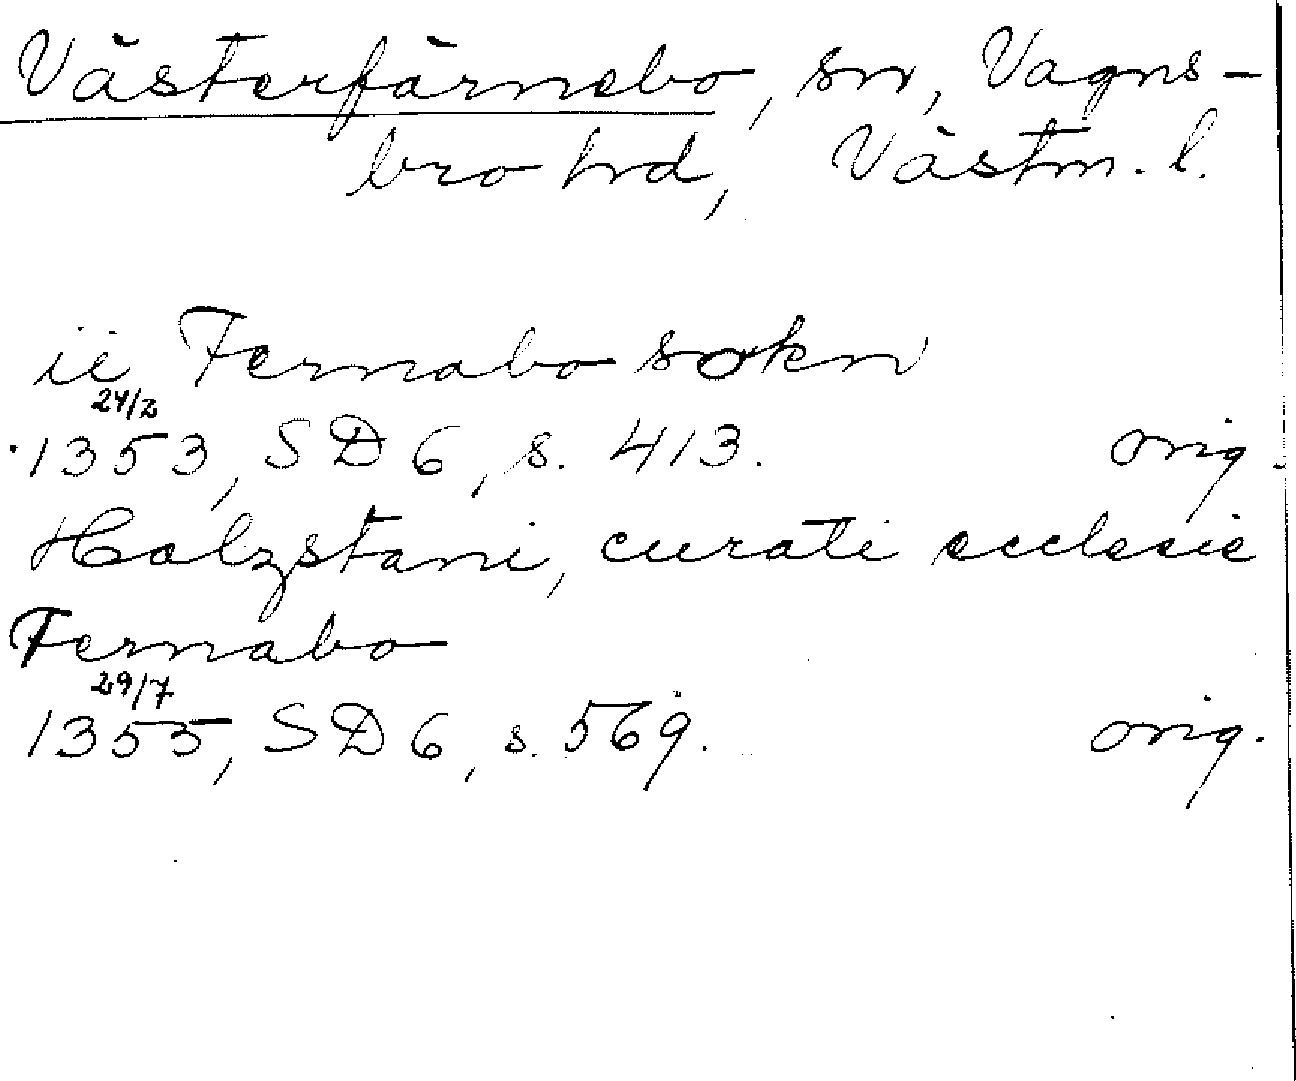 Västerfärnebo, sn, Vagns-
bro hd, Västm. l.
ii Fernabo sokn
24/2
1353, SD 6, s. 413. orig.
Holzstani, curati ecclesie
Fernabo
29/7
1355, SD 6, s. 569. orig.